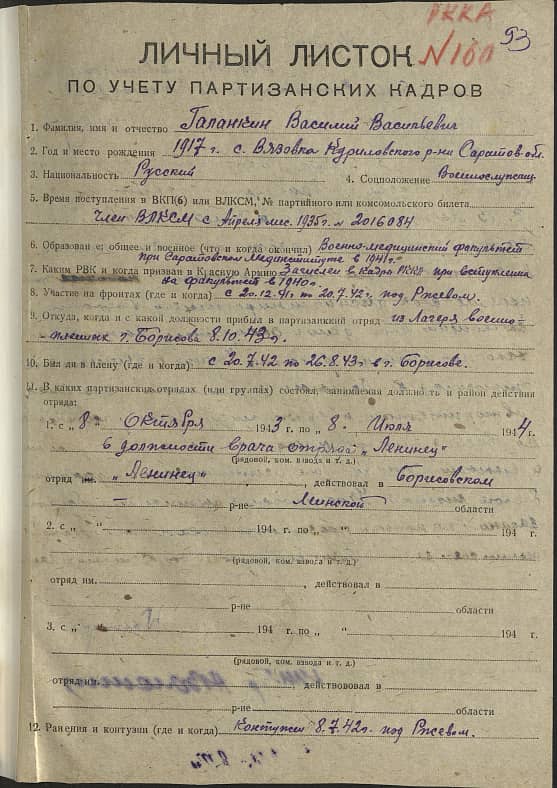 РККА
N 160
93
ЛИЧНЫЙ ЛИСТОК
ПО УЧЕТУ ПАРТИЗАНСКИХ КАДРОВ
1. Фамилия, имя и отчество Галанкин Василий Васильевич
2. Год и место рождения 1917 г. с. Вязовка Куриловского р-на Саратов. обл.
3. Национальность Русский 4. Соцположение Военнослужащ.
5. Время поступления в ВКП(б) или ВЛКСМ, № партийного или комсомольского билета
Член ВЛКСМ с Апреля мес. 1935 г. № 2016084
6. Образование; общее и военное (что и когда окончил) Военно-медицинский факультет
при Саратовском Мединституте в 1941 г.
7. Каким РВК и когда призван в Красную Армию Зачислен в кадры РККА при вступлении
на факультет в 1940 г.
8. Участие на фронтах (где и когда) с 20.12.41 г. по 20.7.42 г. под Ржевом.
9. Откуда, когда и с какой должности прибыл в партизанский отряд из Лагеря военно-
пленных г. Борисова 8.10.43 г.
10. Был ли в плену (где и когда) с 20.7.42 по 26.8.43 г. в г. Борисове.
11. В каких партизанских отрядах (или группах) состоял, занимаемая должность и район действия
отряда:
1. с „ 8 „ Октября 1943 г. по „ 8 „ Июля 1944 г.
в должности врача отряда „Ленинец"
(рядовой, ком. взвода и т. д.)
отряд им. „Ленинец" , действовал в Борисовском
р-не Минской области
2. с „ „ 194 г. по „ „ 194 г.
(рядовой, ком. взвода и т. д.)
отряд им. , действовал в
р-не области
3. с „ „ 194 г. по „ „ 194 г.
(рядовой, ком. взвода и т. д.)
отряд им. , действововал в
р-не области
12. Ранения и контузии (где и когда) Контужен 8.7.42 г. под Ржевом.